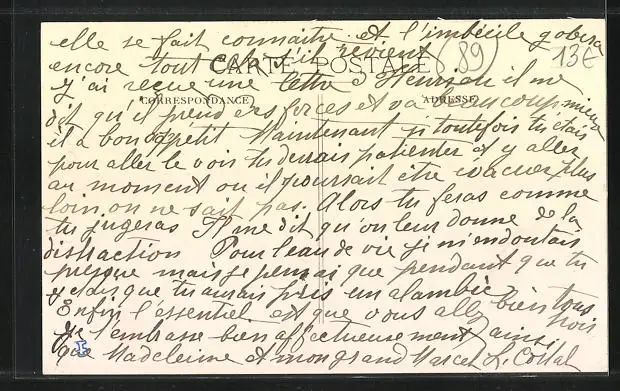 elle se fait connaitre et l'imbécile gobera
encore tout cela s'il revient
89
13€
CARTE POSTALE
J'ai reçue une lettre d'Henri il me
CORRESPONDANCE
ADRESSE
dit qu'il prend des forces et va beaucoup mieux
il a bon appétit Maintenant si toutefois tu étais
pour aller le voir tu devrais patienter et y aller
au moment ou il pourrait être évacuer plus
loin on ne sait pas. Alors tu feras comme
tu jugeras Il me dit qu'on leur donne de la
distraction Pour l'eau de vie je m'en doutais
presque mais je pensai que pendant que tu
y étais que tu aurais pris un alambic
Enfin l'essentiel est que vous allez bien tous
trois
Je t'embrasse bien affectueusement ainsi
que Madeleine et mon grand Marcel L. Costal